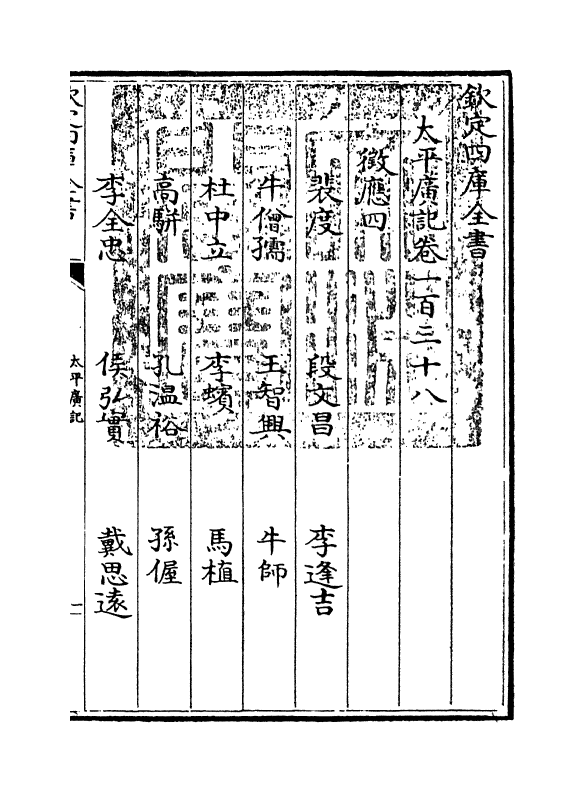 欽定四庫全書
太平廣記卷一百三十八
徵應四
裴度 段文昌 李逢吉
牛僧孺 王智興 牛師
杜中立 李蠙 馬植
高駢 孔温裕 孫偓
李全忠 侯弘實 戴思遠
太平廣記
一